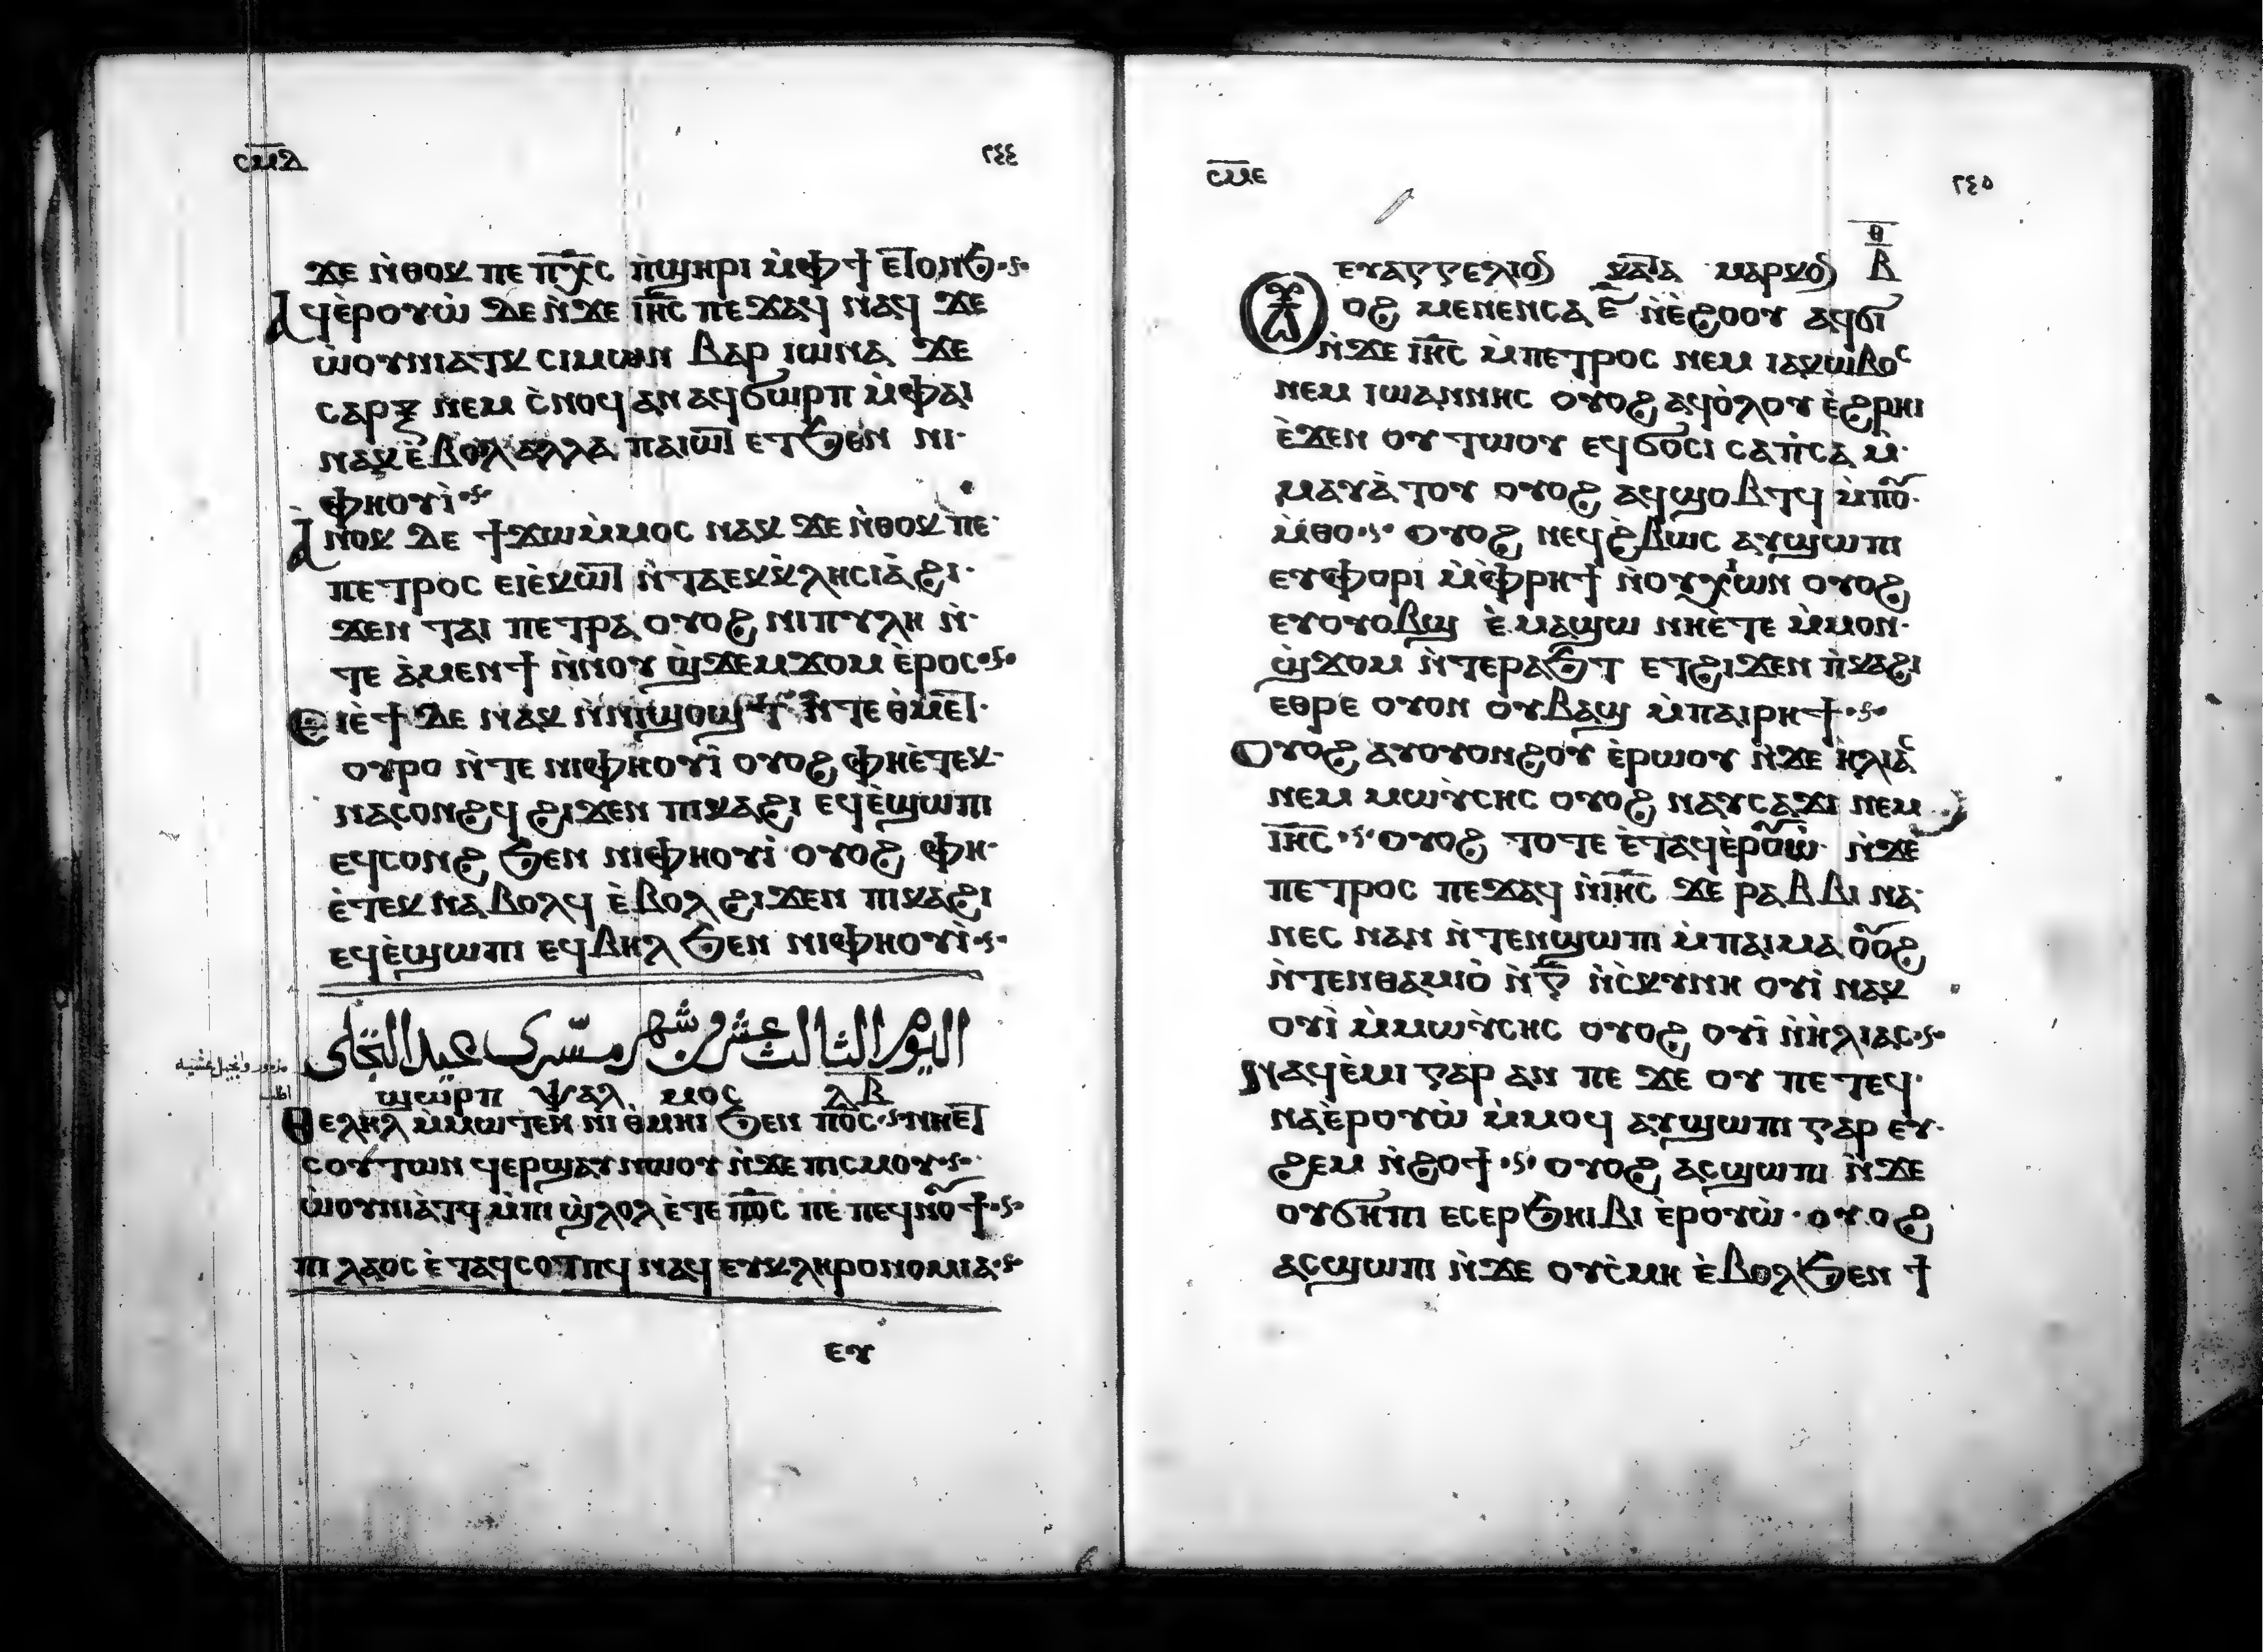 ⲥⲙ̅ⲇ ٢٤٤
ϫⲉ ⲛ̀ⲑⲟⲕ ⲡⲉ ⲡⲭ̅ⲥ ⲡ̀ϣⲏⲣⲓ ⲙ̀ⲫϯ ⲉⲧ̅ⲟⲛϧ
ⲁϥⲉ̀ⲣⲟⲩⲱ̀ ⲇⲉ ⲛ̀ϫⲉ ⲓⲏ̅ⲥ ⲡⲉϫⲁϥ ⲛⲁϥ ϫⲉ
ⲱ̀ⲟⲩⲛⲓⲁⲧⲕ ⲥⲓⲙⲱⲛ ⲃⲁⲣ ⲓⲱⲛⲁ ϫⲉ
ⲥⲁⲣⲝ ⲛⲉⲙ ⲥ̀ⲛⲟϥ ⲁⲛ ⲁϥϭⲱⲣⲡ ⲙ̀ⲫⲁⲓ
ⲛⲁⲕ ⲉ̀ⲃⲟⲗ ⲁⲗⲗⲁ ⲡⲁⲓⲱ̅ⲧ ⲉⲧϧⲉⲛ ⲛⲓ
ⲫⲏⲟⲩⲓ̀
ⲁⲛⲟⲕ ⲇⲉ ϯϫⲱ ⲙ̀ⲙⲟⲥ ⲛⲁⲕ ϫⲉ ⲛ̀ⲑⲟⲕ ⲡⲉ
ⲡⲉⲧⲣⲟⲥ ⲉⲓⲉ̀ⲕⲱ̅ⲧ ⲛ̀ⲧⲁⲉⲕⲕⲗⲏⲥⲓⲁ̀ ϩⲓ
ϫⲉⲛ ⲧⲁⲓ ⲡⲉⲧⲣⲁ ⲟⲩⲟϩ ⲛⲓⲡⲩⲗⲏ ⲛ̀
ⲧⲉ ⲁ̀ⲙⲉⲛϯ ⲛ̀ⲛⲟⲩ ϣ̀ϫⲉⲙϫⲟⲙ ⲉ̀ⲣⲟⲥ
ⲉⲓⲉ̀ϯ ⲇⲉ ⲛⲁⲕ ⲛ̀ⲛⲓϣⲟϣⲧ ⲛ̀ⲧⲉ ⲑ̀ⲙⲉ̅ⲧ
ⲟⲩⲣⲟ ⲛ̀ⲧⲉ ⲛⲓⲫⲏⲟⲩⲓ̀ ⲟⲩⲟϩ ⲫⲏⲉ̀ⲧⲉⲕ
ⲛⲁⲥⲟⲛϩϥ ϩⲓϫⲉⲛ ⲡⲓⲕⲁϩⲓ ⲉϥⲉ̀ϣⲱⲡⲓ
ⲉϥⲥⲟⲛϩ ϧⲉⲛ ⲛⲓⲫⲏⲟⲩⲓ̀ ⲟⲩⲟϩ ⲫⲏ
ⲉ̀ⲧⲉⲕⲛⲁⲃⲟⲗϥ ⲉ̀ⲃⲟⲗ ϩⲓϫⲉⲛ ⲡⲓⲕⲁϩⲓ
ⲉϥⲉ̀ϣⲱⲡⲓ ⲉϥⲃⲏⲗ ϧⲉⲛ ⲛⲓⲫⲏⲟⲩⲓ̀
اليوم الثالث عشر من شهر مسرى عيد التجلى
مزمور وانجيل عشيه
ϣⲱⲣⲡ ⲯⲁⲗⲙⲟⲥ ⲗ̅ⲃ̅
ⲑⲉⲗⲏⲗ ⲙ̀ⲙⲱⲧⲉⲛ ⲛⲓ ⲑ̀ⲙⲏⲓ ϧⲉⲛ ⲡⲟ̅ⲥ ⲛⲏⲉ̅ⲧ
ⲥⲟⲩⲧⲱⲛ ϥⲉⲣϣⲁⲩ ⲛⲱⲟⲩ ⲛ̀ϫⲉ ⲡⲓⲥⲙⲟⲩ
ⲱ̀ⲟⲩⲛⲓⲁ̀ⲧϥ ⲙ̀ⲡⲓ ϣ̀ⲗⲟⲗ ⲉ̀ⲧⲉ ⲡⲟ̅ⲥ ⲡⲉ ⲡⲉϥⲛⲟⲩϯ
ⲡⲓ ⲗⲁⲟⲥ ⲉ̀ⲧⲁϥⲥⲟⲧⲡϥ ⲛⲁϥ ⲉⲩⲕⲗⲏⲣⲟⲛⲟⲙⲓⲁ
ⲉⲩ
ⲥⲙ̅ⲉ ٢٤٥
ⲉⲩⲁⲅⲅⲉⲗⲓⲟⲛ ⲕⲁⲧⲁ ⲙⲁⲣⲕⲟⲛ ⲑ̅ ⲃ̅
ⲟⲩⲟϩ ⲙⲉⲛⲉⲛⲥⲁ ⲋ̅ ⲛ̀ⲉ̀ϩⲟⲟⲩ ⲁϥϭⲓ
ⲛ̀ϫⲉ ⲓⲏ̅ⲥ ⲙ̀ⲡⲉⲧⲣⲟⲥ ⲛⲉⲙ ⲓⲁⲕⲱⲃⲟⲥ
ⲛⲉⲙ ⲓⲱⲁⲛⲛⲏⲥ ⲟⲩⲟϩ ⲁϥⲟ̀ⲗⲟⲩ ⲉ̀ϩⲣⲏⲓ
ⲉ̀ϫⲉⲛ ⲟⲩ ⲧⲱⲟⲩ ⲉϥϭⲟⲥⲓ ⲥⲁⲡ̀ⲥⲁ ⲙ̀
ⲙⲁⲩⲁ̀ⲧⲟⲩ ⲟⲩⲟϩ ⲁϥϣⲟⲃⲧϥ ⲙ̀ⲡⲟⲩ
ⲙ̀ⲑⲟ ⲟⲩⲟϩ ⲛⲉϥϩ̀ⲃⲱⲥ ⲁⲩϣⲱⲡⲓ
ⲉⲩⲫⲟⲣⲓ ⲙ̀ⲫ̀ⲣⲏϯ ⲛ̀ⲟⲩⲭⲓⲱⲛ ⲟⲩⲟϩ
ⲉⲩⲟⲩⲟⲃϣ ⲉ̀ⲙⲁϣⲱ ⲛⲏⲉ̀ⲧⲉ ⲙ̀ⲙⲟⲛ
ϣ̀ϫⲟⲙ ⲛ̀ⲧⲉⲣⲁϧⲧ ⲉⲧϩⲓϫⲉⲛ ⲡ̀ⲕⲁϩⲓ
ⲉⲑⲣⲉ ⲟⲩⲟⲛ ⲟⲩⲃⲁϣ ⲙ̀ⲡⲁⲓⲣⲏϯ
ⲟⲩⲟϩ ⲁⲩⲟⲩⲟⲛϩⲟⲩ ⲉ̀ⲣⲱⲟⲩ ⲛ̀ϫⲉ ⲏ̀ⲗⲓⲁⲥ
ⲛⲉⲙ ⲙⲱⲩ̀ⲥⲏⲥ ⲟⲩⲟϩ ⲛⲁⲩⲥⲁϫⲓ ⲛⲉⲙ
ⲓⲏ̅ⲥ ⲟⲩⲟϩ ⲧⲟⲧⲉ ⲉ̀ⲧⲁϥⲉ̀ⲣⲟⲩⲱ̀ ⲛ̀ϫⲉ
ⲡⲉⲧⲣⲟⲥ ⲡⲉϫⲁϥ ⲛ̀ⲓⲏ̅ⲥ ϫⲉ ⲣⲁⲃⲃⲓ ⲛⲁ
ⲛⲉⲥ ⲛⲁⲛ ⲛ̀ⲧⲉⲛϣⲱⲡⲓ ⲙ̀ⲡⲁⲓⲙⲁ ⲟⲩⲟϩ
ⲛ̀ⲧⲉⲛⲑⲁⲙⲓⲟ̀ ⲛ̀ⲅ̅ ⲛ̀ⲥ̀ⲕⲩⲛⲏ ⲟⲩⲓ̀ ⲛⲁⲕ
ⲟⲩⲓ̀ ⲙ̀ⲙⲱⲩ̀ⲥⲏⲥ ⲟⲩⲟϩ ⲟⲩⲓ̀ ⲛ̀ⲏ̀ⲗⲓⲁⲥ
ⲛⲁϥⲉ̀ⲙⲓ ⲅⲁⲣ ⲁⲛ ⲡⲉ ϫⲉ ⲟⲩ ⲡⲉⲧⲉϥ
ⲛⲁⲉ̀ⲣⲟⲩⲱ̀ ⲙ̀ⲙⲟϥ ⲁⲩϣⲱⲡⲓ ⲅⲁⲣ ⲉⲩ
ϩⲉⲙ ⲛ̀ϩⲟϯ ⲟⲩⲟϩ ⲁⲥϣⲱⲡⲓ ⲛ̀ϫⲉ
ⲟⲩϭⲏⲡⲓ ⲉⲥⲉⲣϧⲏⲓⲃⲓ ⲉ̀ⲣⲟⲩⲱ̀ ⲟⲩⲟϩ
ⲁⲥϣⲱⲡⲓ ⲛ̀ϫⲉ ⲟⲩⲥ̀ⲙⲏ ⲉ̀ⲃⲟⲗϧⲉⲛ ϯ